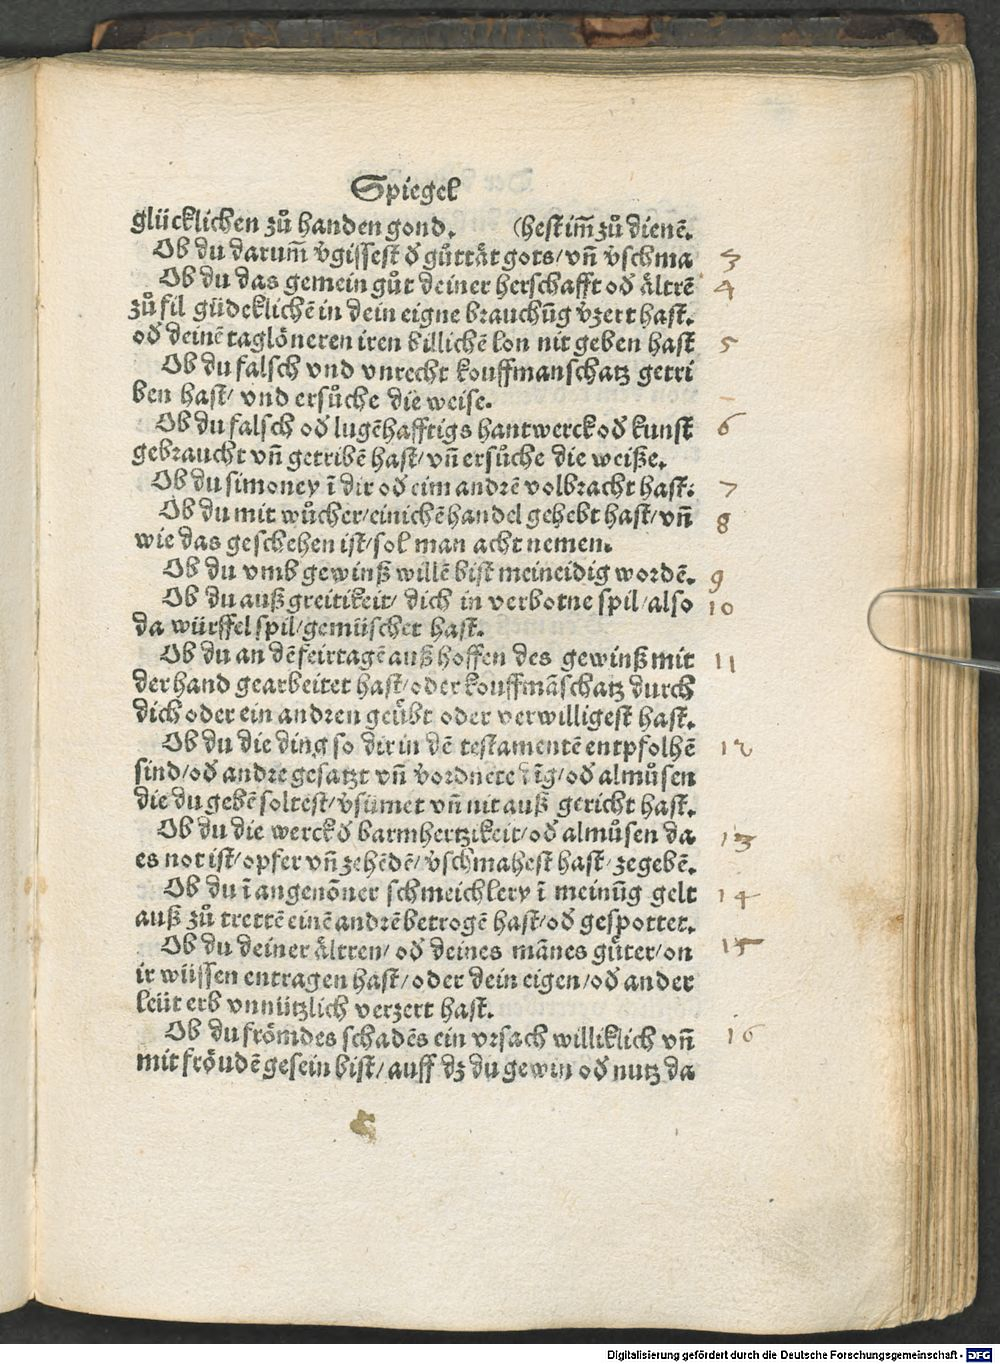 Spiegel
glücklichen zů handen gond. (hest im̃ zů dienē.
Ob du darum̃ v̓gissest d̕ gůttät gots/ vñ v̓schma 3
Ob du das gemein gůt deiner herschafft od̕ ältrē 4
zů fil güdeklichē in dein eigne brauchūg v̓zert hast.
od̕ deinē taglöneren iren billichē lon nit geben hast 5
Ob du falsch vnd vnrecht kouffmanschatz getri
ben hast/ vnd ersůche die weise.
Ob du falsch od̕ lugēhafftigs hantwerck od̕ kunst 6
gebraucht vñ getribē hast/ vñ ersůche die weiße.
Ob du simoney ī dir od̕ eim andrē volbracht hast. 7
Ob du mit wůcher/ einichē handel gehebt hast/ vñ 8
wie das geschehen ist/ sol man acht nemen.
Ob du vmb gewinß willē bist meineidig wordē. 9
Ob du auß greitikeit/ dich in verbotne spil/ also 10
da würffel spil/ gemüschet hast.
Ob du an dē feirtagē auß hoffen des gewinß mit 11
der hand gearbeitet hast/ oder kouffmāschatz durch
dich oder ein andren geübt oder verwilligest hast.
Ob du die ding so dir in dē testamentē entpfolhē 12
sind/ od̕ andre gesatzt vñ v̓ordnete dīg/ od̕ almůsen
die du gebē soltest/ v̓sümet vñ nit auß gericht hast.
Ob du die werck d̕ barmhertzikeit/ od̕ almůsen da 13
es not ist/ opfer vñ zehēdē/ v̓schmahest hast/ zegebē.
Ob du ī angenōner schmeichlery ī meinūg gelt 14
auß zů trettē einē andrē betrogē hast/ od̕ gespottet.
Ob du deiner ältren/ od̕ deines mānes gůter/ on 15
ir wüssen entragen hast/ oder dein eigen/ od̕ ander
leüt erb vnnützlich verzert hast.
Ob du frömdes schadēs ein vrsach williklich vñ 16
mit fröudē gesein bist/ auff dz du gewin od̕ nutz da
Digitalisierung gefördert durch die Deutsche Forschungsgemeinschaft - DFG